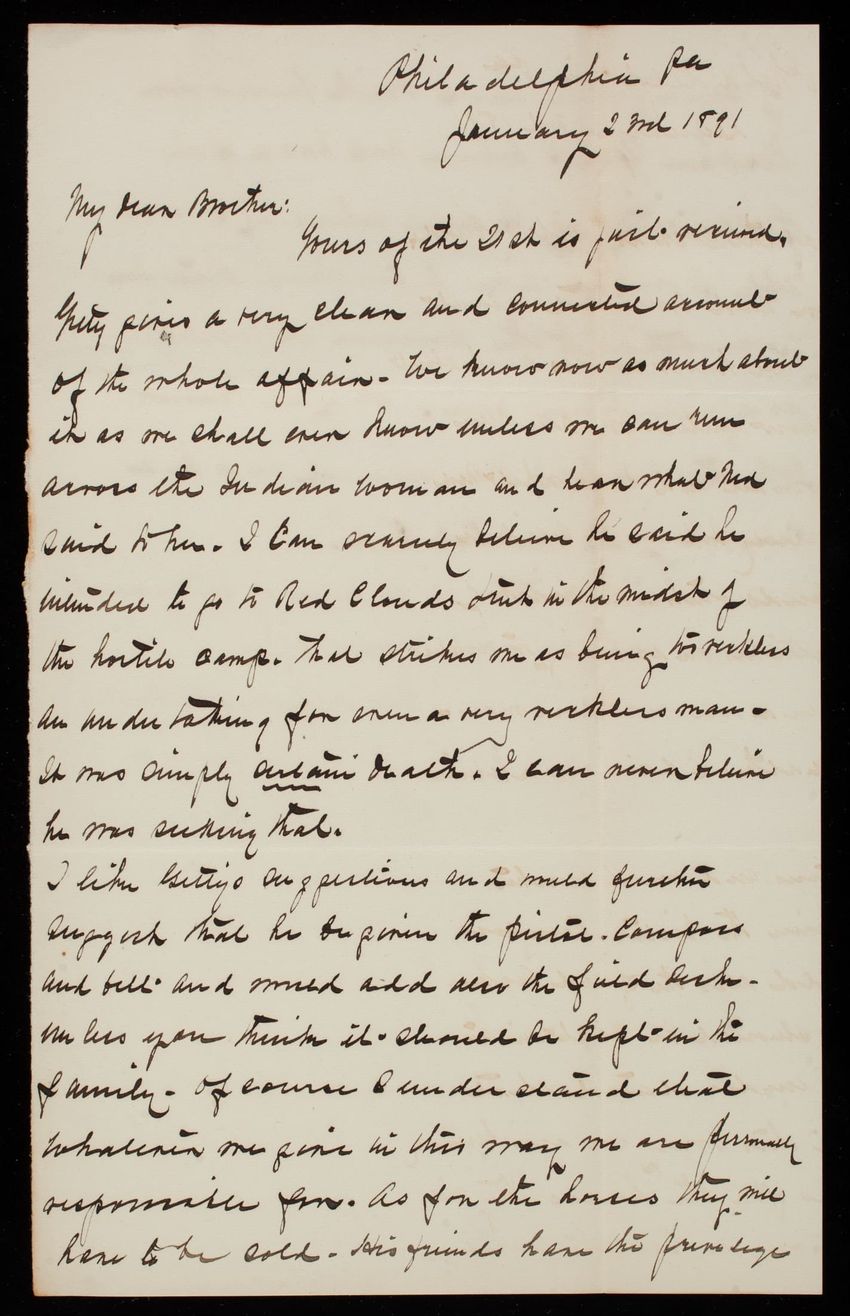 Philadelphia Pa
January 23rd 1891
My dear Brother:
Yours of the 21st is just received.
Getty gives a very clear and connected account
of the whole affair. We know now as much about
it as we shall ever know unless we can run
across the Indian woman and hear what Ned
said to her. I can scarcely believe he said he
intended to go to Red Clouds tent in the midst of
the hostile camp. That strikes me as being too reckless
an undertaking for even a very reckless man.
It was simply certain death. I can never believe
he was seeking that.
I like Getty's suggestions and would further
suggest that he be given the pistol. Compass
and belt and would add also the field desk.
unless you think it should be kept in the
family. Of course I understand that
whatever we give in this way we are personally
responsible for. As for the horses they will
have to be sold. His friends have the privilege